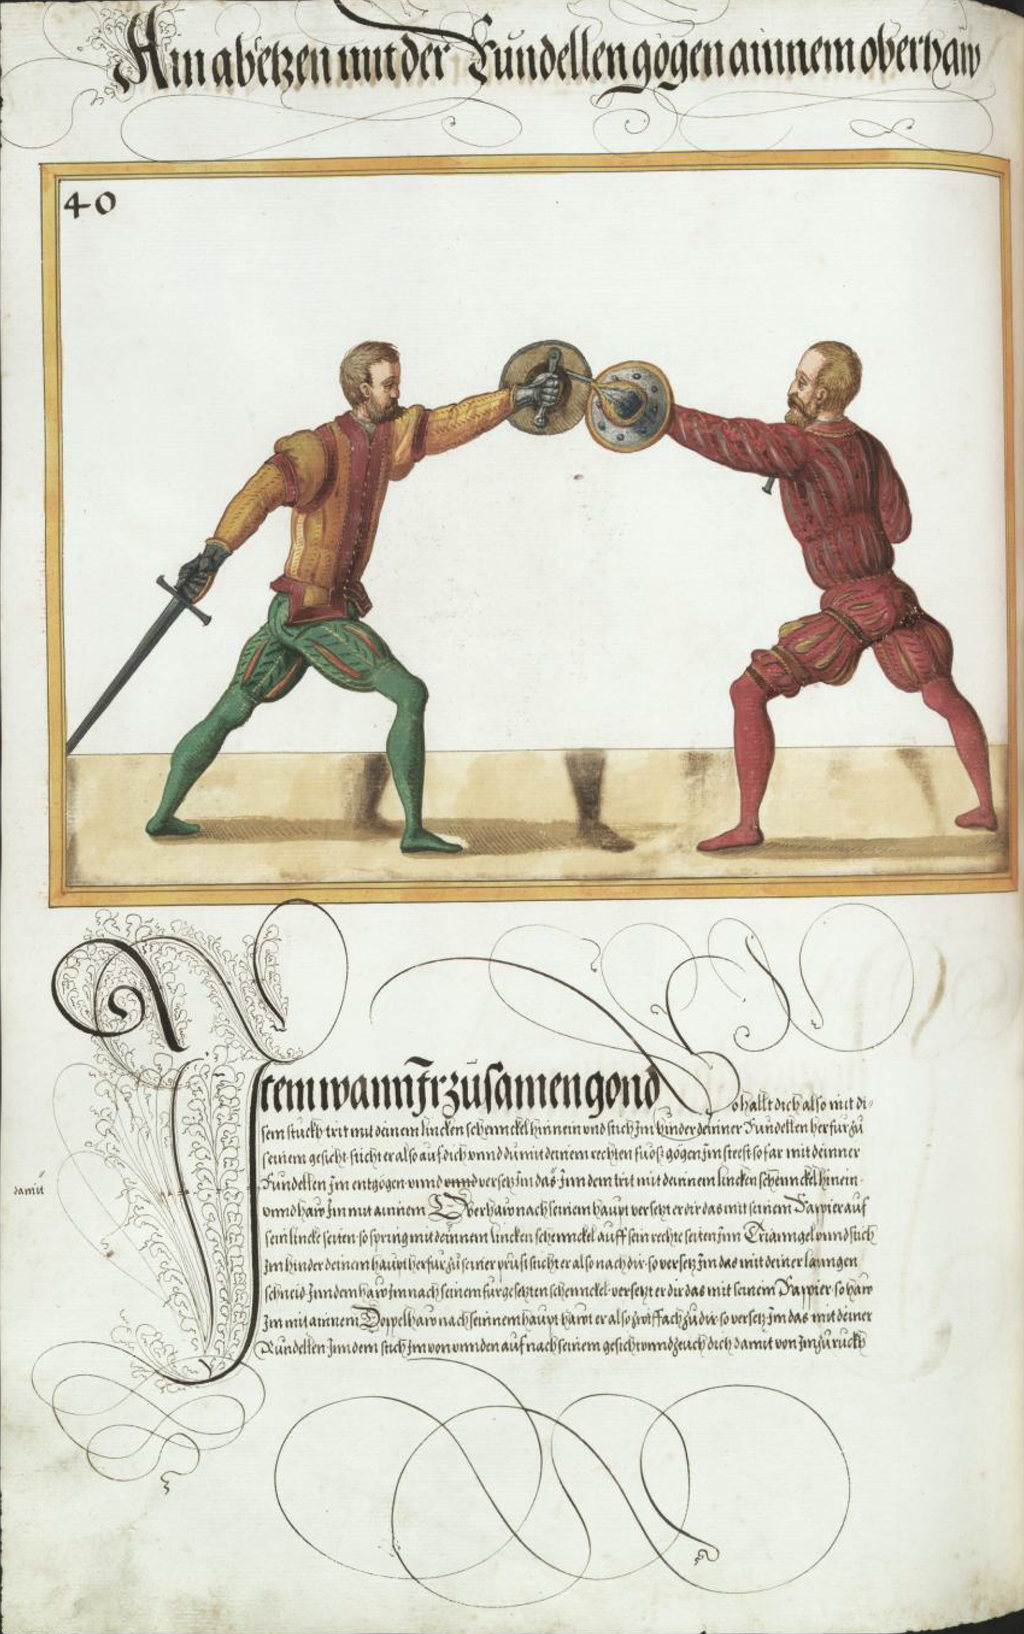 Ain absetzen mit der Rundellen gögen ainnem oberhaw
40
Item wann Ir zusamen gond So hallt dich also mit di-
sem stuckh trit mit deinem lincken schennckel hinnein vnd stich Im hinder deinner Rundellen herfur zu
seinem gesicht sticht er also auf dich vnnd du mit deinem rechten fuoss gögen Im steest so far mit deinner
Rundellen Im entgögen vnnd vnnd versetz Im das Inn dem trit mit deinnem lincken schennckel hinein
damit
vnnd haw Im mit ainnem Oberhaw nach seinem haupt versetzt er dir das mit seinem Rappier auf
sein lincke seiten so spring mit deinnem lincken schennckel auff sein rechte seiten Inn Trianngel vnnd stich
Im hinder deinem haupt herfur zu seiner prust sticht er also nach dir so versetz Im das mit deiner lanngen
schneid Inn dem haw Im nach seinem furgesetzten schennckel versetzt er dir das mit seinem Rappier so haw
Im mit ainnem Doppelhaw nach seinnem haupt hawt er also zwiffach zu dir so versetz Im das mit deiner
Rundellen Inn dem stich Im von vnnden auf nach seinem gesicht vnnd zeuch dich damit von Im zu ruckh